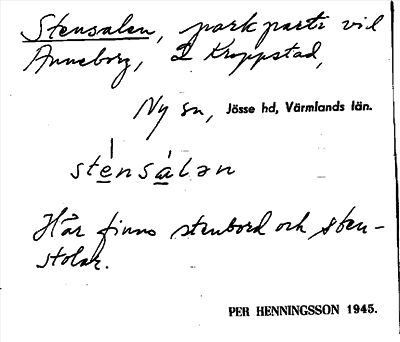 Stensalen, parkparti vid
Anneborg, I Kroppstad,
Ny sn, Jösse hd, Värmlands län.
stensàlən
Här finns stenbord och sten-
stolar.
PER HENNINGSSON 1945.